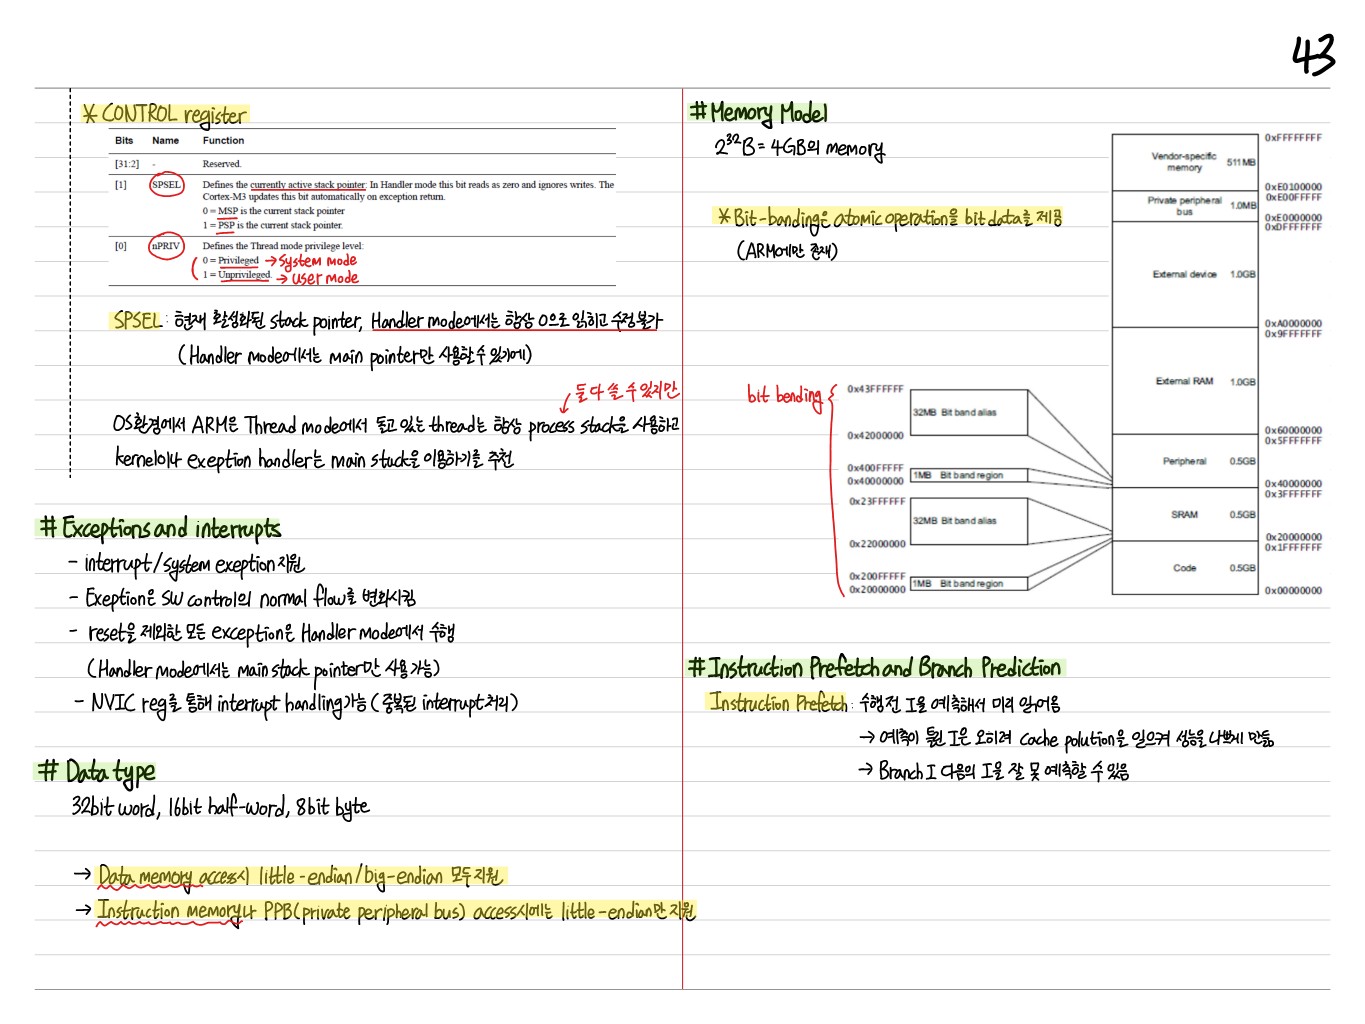 43
* CONTROL register
Bits Name Function
[31:2] - Reserved.
[1] SPSEL Defines the currently active stack pointer: In Handler mode this bit reads as zero and ignores writes. The
Cortex-M3 updates this bit automatically on exception return.
0 = MSP is the current stack pointer
1 = PSP is the current stack pointer.
[0] nPRIV Defines the Thread mode privilege level:
0 = Privileged → System mode
1 = Unprivileged. → user mode
SPSEL : 현재 활성화된 stack pointer, Handler mode에서는 항상 0으로 읽히고 수정불가
(Handler mode에서는 main pointer만 사용할 수 있기에)
둘 다 쓸 수 있지만
OS환경에서 ARM은 Thread mode에서 돌고 있는 thread는 항상 process stack을 사용하고
kernel이나 exeption handler는 main stack을 이용하기를 추천
# Exceptions and interrupts
- interrupt/system exeption 지원
- Exeption은 SW control의 normal flow를 변화시킴
- reset을 제외한 모든 exception은 Handler mode에서 수행
(Handler mode에서는 main stack pointer만 사용 가능)
- NVIC reg를 통해 interrupt handling 가능 (중복된 interrupt 처리)
# Data type
32bit word, 16bit half-word, 8bit byte
→ Data memory access시 little-endian/big-endian 모두 지원
→ Instruction memory나 PPB(private peripheral bus) access시에는 little-endian만 지원
# Memory Model
2³²B = 4GB의 memory
* Bit-banding은 atomic operation을 bit data를 제공
(ARM에만 존재)
bit bending
0x43FFFFFF
32MB Bit band alias
0x42000000
0x400FFFFF
0x40000000
1MB Bit band region
0x23FFFFFF
32MB Bit band alias
0x22000000
0x200FFFFF
0x20000000
1MB Bit band region
0xFFFFFFFF
Vendor-specific
memory 511MB
0xE0100000
0xE00FFFFF
Private peripheral
bus 1.0MB
0xE0000000
0xDFFFFFFF
External device 1.0GB
0xA0000000
0x9FFFFFFF
External RAM 1.0GB
0x60000000
0x5FFFFFFF
Peripheral 0.5GB
0x40000000
0x3FFFFFFF
SRAM 0.5GB
0x20000000
0x1FFFFFFF
Code 0.5GB
0x00000000
# Instruction Prefetch and Branch Prediction
Instruction Prefetch : 수행 전 I을 예측해서 미리 읽어옴
→ 예측이 틀린 I은 오히려 cache polution을 일으켜 성능을 나쁘게 만듦
→ Branch I 다음의 I을 잘 못 예측할 수 있음